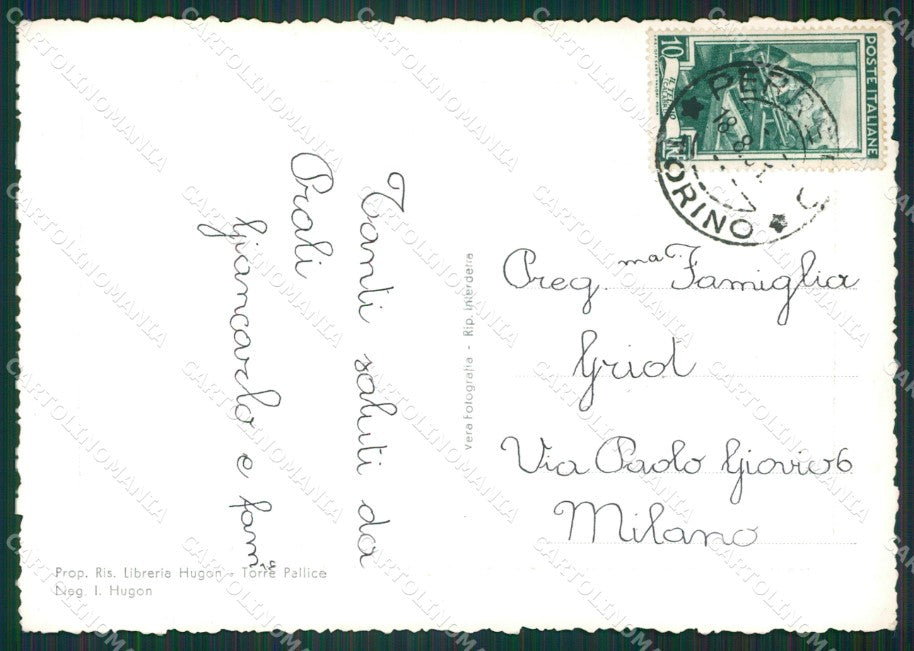 Tanti saluti da
Prali
Giancarlo e famª
Vera Fotografia - Rip. Interdetta
Prop. Ris. Libreria Hugon - Torre Pellice
Neg. I. Hugon
10
POSTE ITALIANE
TORINO
Preg.ma Famiglia
Griot
Via Paolo Giovio 6
Milano
CARTOLINOMANIA